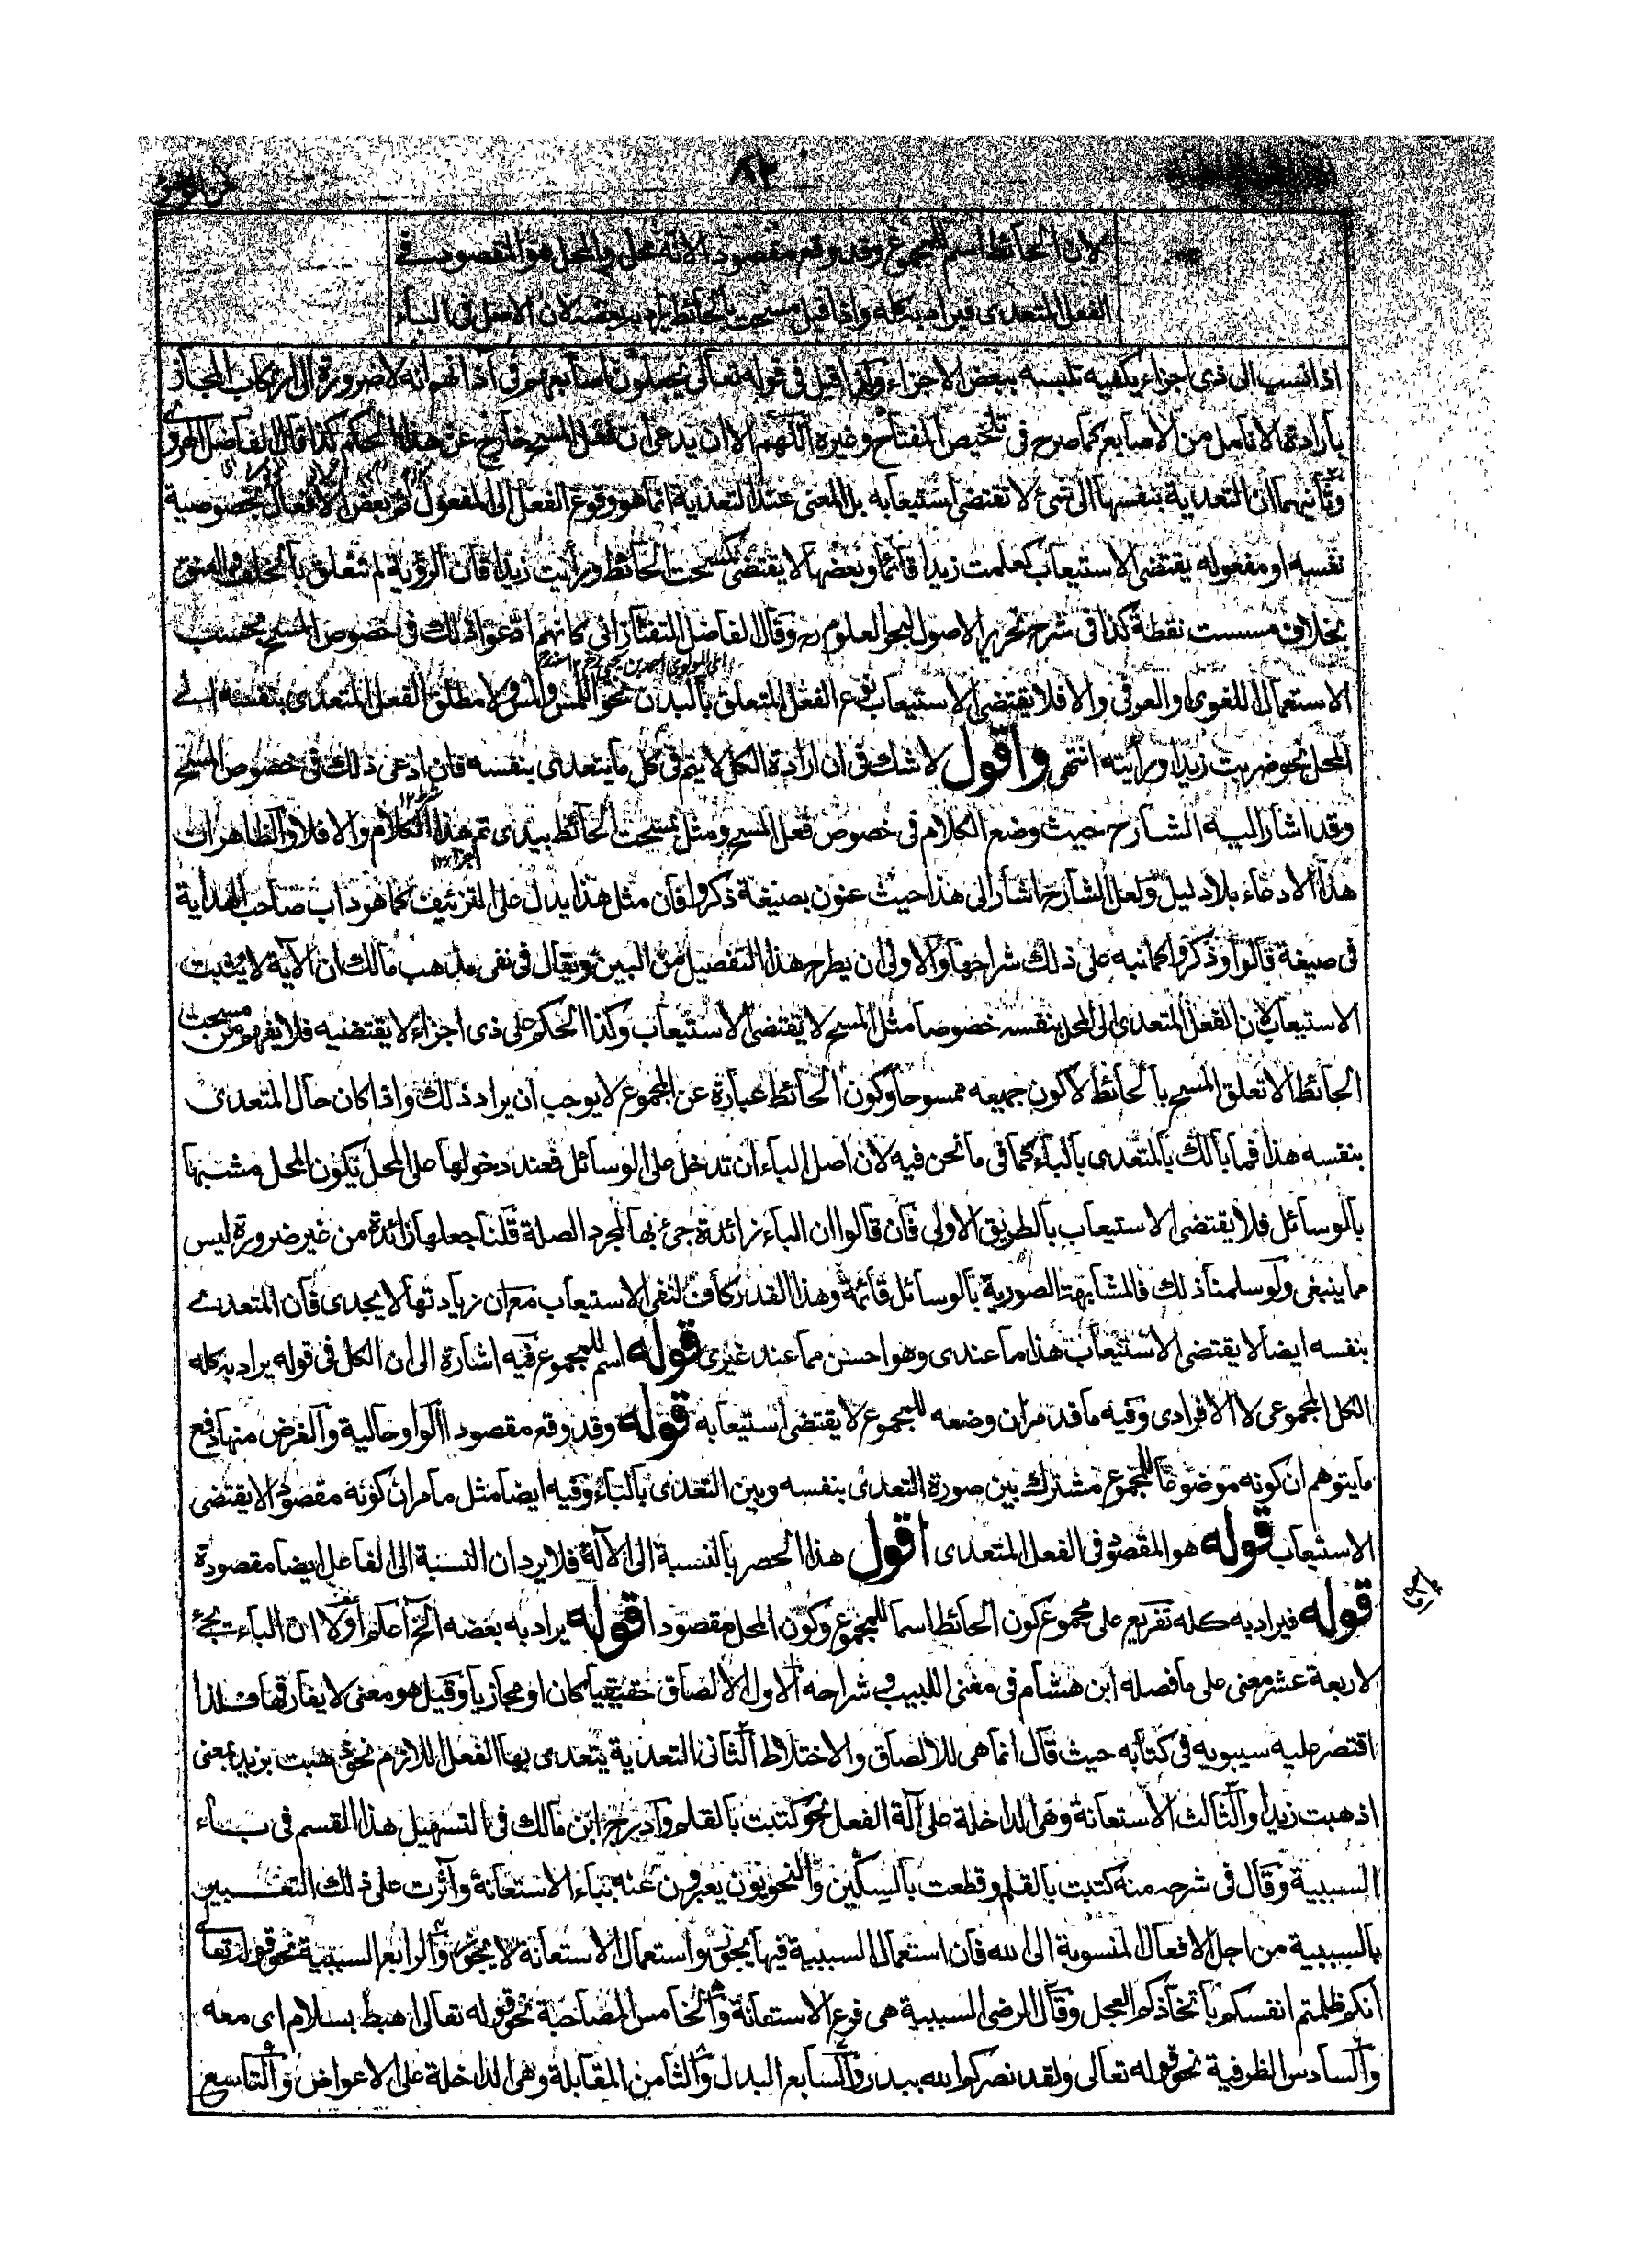 ٨٢
لان الحائط اسم للمجموع وقد وقع مقصودا لانه محل والمحل هو المقصود فى
الفعل المتعدى فيراد به كله واذا قيل مسحت بالحائط يراد به بعضه لان الاصل فى الباء
اذا نسب الى ذى اجزاء يكفيه تلبسه ببعض الاجزاء ولذا قيل فى قوله تعالى يجعلون اصابعهم فى آذانهم انه لا ضرورة الى ارتكاب المجاز
بارادة الانامل من الاصابع كما صرح فى تلخيص المفتاح وغيره اللهم الا ان يدعى ان فعل المسح خارج عن هذا الحكم كذا قال الفاضل الهروى
وثانيهما ان التعدية بنفسها الى شئ لا تقتضى استيعابه بل المعنى عند التعدية انما هو وقوع الفعل الى المفعول ثم بعض الافعال بخصوصية
نفسه او مفعوله يقتضى الاستيعاب كعلمت زيدا قائما وبعضها لا يقتضى كمسحت الحائط ورأيت زيدا فان الرؤية لم تتعلق بالخلف
بخلاف مسست نقطة كذا فى شرح تحرير الاصول لبحر العلوم رح وقال الفاضل التفتازانى كانهم ادعوا ذلك فى خصوص المسح بحسب
الاستعمال اللغوى او العرفى والا فلا يقتضى الاستيعاب نوع الفعل المتعلق بالبدن نحو اللمس والمس ولا مطلق الفعل المتعدى بنفسه الى
المحل نحو ضربت زيدا ورأيته انتهى واقول لا شك فى ان ارادة الكل لا يتم فى كل ما يتعدى بنفسه فان ادعى ذلك فى خصوص المسح
وقد اشار اليه الشارح حيث وضع الكلام فى خصوص فعل المسح ومثل بمسحت الحائط بيدى تم هذا الكلام والا فلا والظاهر ان
هذا الادعاء بلا دليل ولعل الشارح اشار الى هذا حيث عنون بصيغة ذكروا فان مثل هذا يدل على التزئيف كما هو داب صاحب الهداية
فى صيغة قالوا وذكروا كما نبه على ذلك شراحها والاولى ان يطرح هذا التفصيل من البين ويقال فى نفى مذهب مالك ان الآية لا يثبت
الاستيعاب لان الفعل المتعدى الى المحل بنفسه خصوصا مثل المسح لا يقتضى الاستيعاب وكذا الحكم على ذى اجزاء لا يقتضيه فلا يفهم من مسحت
الحائط الا تعلق المسح بالحائط لا كون جميعه ممسوحا وكون الحائط عبارة عن المجموع لا يوجب ان يراد ذلك واذا كان حال المتعدى
بنفسه هذا فما بالك بالمتعدى بالباء كما فى ما نحن فيه لان اصل الباء ان تدخل على الوسائل فعند دخولها على المحل يكون المحل مشبها
بالوسائل فلا يقتضى الاستيعاب بالطريق الاولى فان قالوا ان الباء زائدة جئ بها لمجرد الصلة قلنا جعلها زائدة من غير ضرورة ليس
مما ينبغى ولو سلمنا ذلك فالمشابهة الصورية بالوسائل قائمة وهذا القدر كاف لنفى الاستيعاب مع ان زيادتها لا يجدى فان المتعدى
بنفسه ايضا لا يقتضى الاستيعاب هذا ما عندى وهو احسن مما عند غيرى قوله اسم للمجموع فيه اشارة الى ان الكل فى قوله يراد به كله
الكل المجموعى لا الافرادى وفيه ما قد مر ان وضعه للمجموع لا يقتضى استيعابه قوله وقد وقع مقصودا الواو حالية والغرض منها دفع
ما يتوهم ان كونه موضوعا للمجموع مشترك بين صورة التعدى بنفسه وبين التعدى بالباء وفيه ايضا مثل ما مر ان كونه مقصودا لا يقتضى
الاستيعاب قوله هو المقصود فى الفعل المتعدى اقول هذا الحصر بالنسبة الى الآلة فلا يرد ان النسبة الى الفاعل ايضا مقصودة
قوله فيراد به كله تفريع على مجموع كون الحائط اسما للمجموع وكون المحل مقصودا قوله يراد به بعضه الخ اعلم اولا ان الباء تجئ
لاربعة عشر معنى على ما فصله ابن هشام فى مغنى اللبيب و شراحه الاول الالصاق حقيقيا كان او مجازيا وقيل هو معنى لا يفارقها فلذا
اقتصر عليه سيبويه فى كتابه حيث قال انما هى للالصاق والاختلاط الثانى التعدية يتعدى بها الفعل اللازم نحو ذهبت بزيد بمعنى
اذهبت زيدا والثالث الاستعانة وهى الداخلة على آلة الفعل نحو كتبت بالقلم وادرج ابن مالك فى التسهيل هذا القسم فى باء
السببية وقال فى شرحه منه كتبت بالقلم وقطعت بالسكين والنحويون يعبرون عنه بباء الاستعانة وآثرت على ذلك التعبير
بالسببية من اجل الافعال المنسوبة الى الله فان استعمال السببية فيها يجوز واستعمال الاستعانة لا يجوز والرابع السببية نحو قوله تعالى
انكم ظلمتم انفسكم باتخاذكم العجل وقال الرضى السببية هى فرع الاستعانة والخامس المصاحبة نحو قوله تعالى اهبط بسلام اى معه
والسادس الظرفية نحو قوله تعالى ولقد نصركم الله ببدر والسابع البدل والثامن المقابلة وهى الداخلة على الاعواض والتاسع